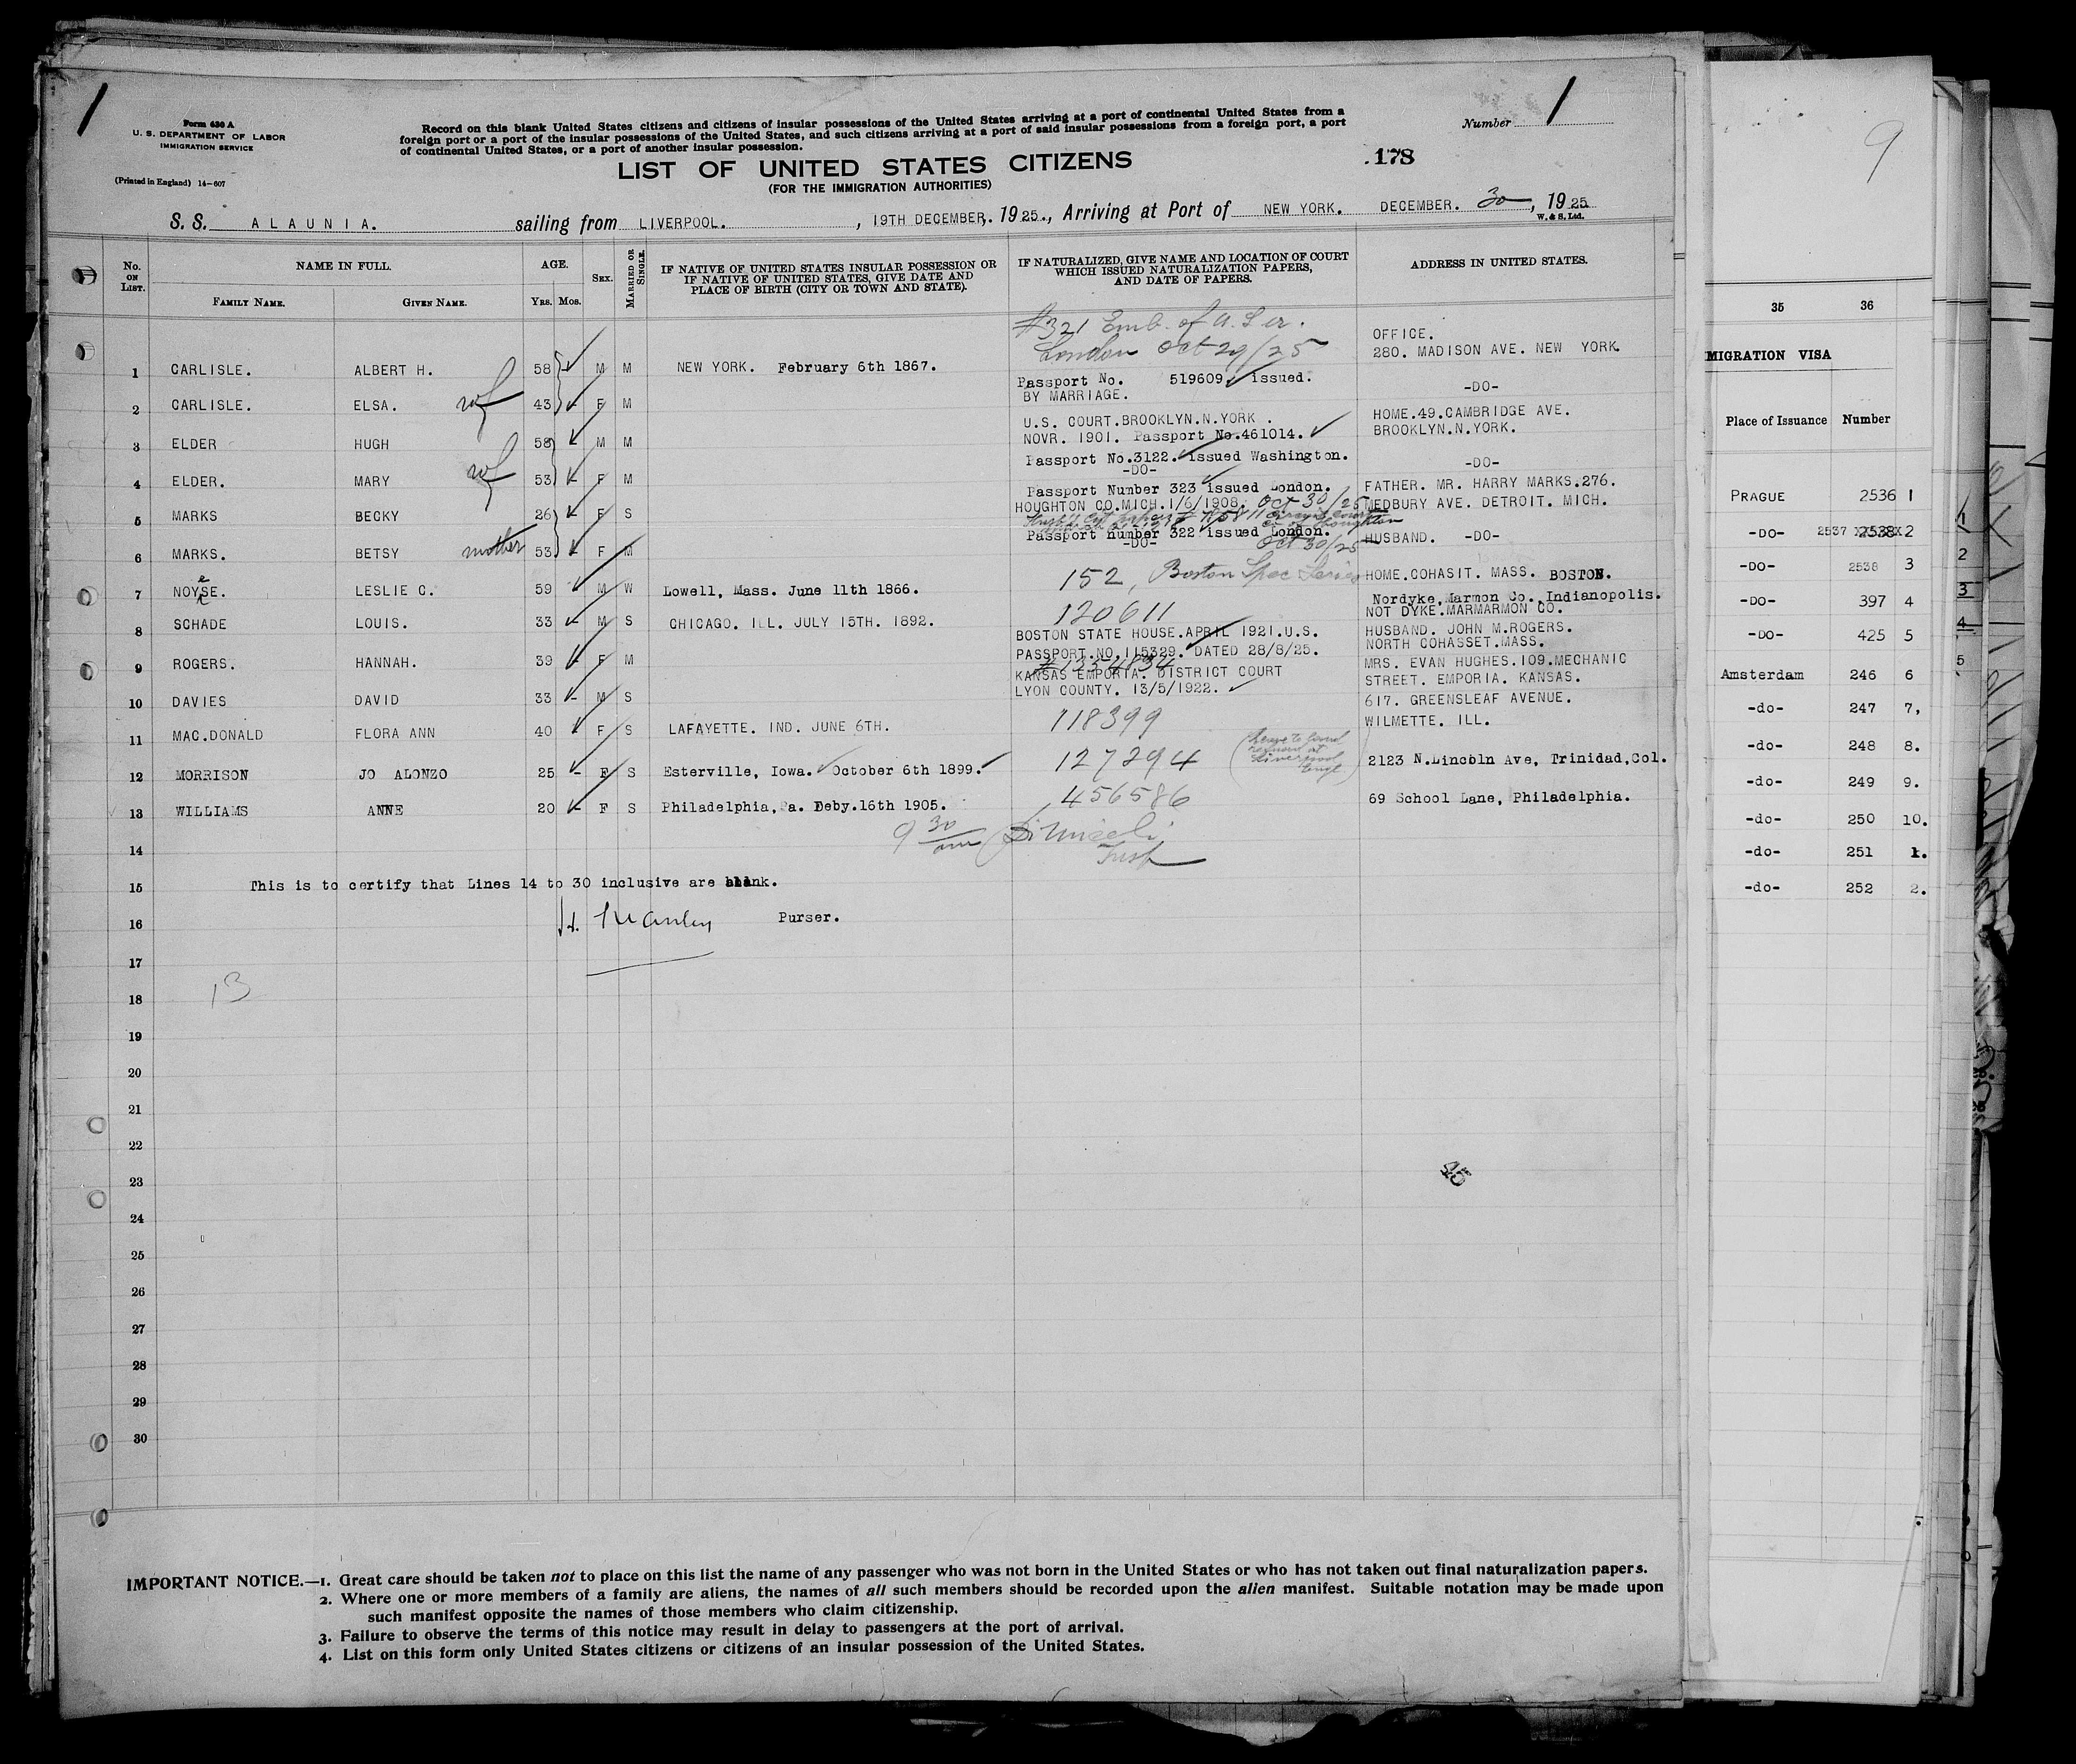 1
Form 630 A
U. S. DEPARTMENT OF LABOR
IMMIGRATION SERVICE
(Printed in England) 14-607
Record on this blank United States citizens and citizens of insular possessions of the United States arriving at a port of continental United States from a
foreign port or a port of the insular possessions of the United States, and such citizens arriving at a port of said insular possessions from a foreign port, a port
of continental United States, or a port of another insular possession.
Number 1
LIST OF UNITED STATES CITIZENS
(FOR THE IMMIGRATION AUTHORITIES)
178
S. S. ALAUNIA. sailing from LIVERPOOL. , 19TH DECEMBER,. 1925., Arriving at Port of NEW YORK. DECEMBER. 30, 1925
W. & S. Ltd.
No. ON LIST.
NAME IN FULL.
FAMILY NAME. GIVEN NAME.
AGE.
YRS. MOS.
SEX.
MARRIED OR SINGLE.
IF NATIVE OF UNITED STATES INSULAR POSSESSION OR
IF NATIVE OF UNITED STATES, GIVE DATE AND
PLACE OF BIRTH (CITY OR TOWN AND STATE).
IF NATURALIZED, GIVE NAME AND LOCATION OF COURT
WHICH ISSUED NATURALIZATION PAPERS,
AND DATE OF PAPERS.
ADDRESS IN UNITED STATES.
#321 Emb. of
London Oct 29/25
OFFICE.
280. MADISON AVE. NEW YORK.
1 CARLISLE. ALBERT H. 58 - M M NEW YORK. February 6th 1867.
Passport No. 519609 issued.
BY MARRIAGE.
2 CARLISLE. ELSA. wf 43 - F M -DO-
U.S. COURT.BROOKLYN.N.YORK .
NOVR. 1901. Passport No.461014.
HOME.49.CAMBRIDGE AVE.
BROOKLYN.N.YORK.
3 ELDER HUGH 58 M M
Passport No.3122. issued Washington.
-DO-
4 ELDER. MARY wf 53 - F M -DO-
Passport Number 323 issued London.
HOUGHTON CO.MICH.1/6/1908. Oct 30/25
FATHER. MR. HARRY MARKS.276.
MEDBURY AVE. DETROIT. MICH.
5 MARKS BECKY 26 - F S
Passport number 322 issued London.
-DO- Oct 30/25
6 MARKS. BETSY mother 53 - F M HUSBAND. -DO-
7 NOYSE. LESLIE C. 59 M W Lowell, Mass. June 11th 1866. 152, Boston Spec Series HOME.COHASIT. MASS. BOSTON.
Nordyke,Marmon Co. Indianopolis.
NOT DYKE.MARMARMON CO.
8 SCHADE LOUIS. 33 - M S CHICAGO. ILL. JULY 15TH. 1892. 120611
BOSTON STATE HOUSE.APRIL 1921.U.S.
PASSPORT.NO.115329. DATED 28/8/25.
HUSBAND. JOHN M.ROGERS.
NORTH COHASSET.MASS.
9 ROGERS. HANNAH. 39 - F M
#1354834
KANSAS EMPORIA. DISTRICT COURT
LYON COUNTY. 13/5/1922.
MRS. EVAN HUGHES.109.MECHANIC
STREET. EMPORIA. KANSAS.
10 DAVIES DAVID 33 - M S
617. GREENSLEAF AVENUE.
WILMETTE. ILL.
11 MAC.DONALD FLORA ANN 40 F S LAFAYETTE. IND. JUNE 6TH. 118399
12 MORRISON JO ALONZO 25 - F S Esterville, Iowa. October 6th 1899. 127294 2123 N.Lincoln Ave, Trinidad,Col.
13 WILLIAMS ANNE 20 - F S Philadelphia, a. Feby.16th 1905. 456586 69 School Lane, Philadelphia.
9 30
am
Insp
14
15 This is to certify that Lines 14 to 30 inclusive are blank.
16 Purser.
17
13
18
19
20
21
22
45
23
24
25
26
27
28
29
30
IMPORTANT NOTICE.—1. Great care should be taken not to place on this list the name of any passenger who was not born in the United States or who has not taken out final naturalization papers.
2. Where one or more members of a family are aliens, the names of all such members should be recorded upon the alien manifest. Suitable notation may be made upon
such manifest opposite the names of those members who claim citizenship.
3. Failure to observe the terms of this notice may result in delay to passengers at the port of arrival.
4. List on this form only United States citizens or citizens of an insular possession of the United States.
9
35 36
MIGRATION VISA
Place of Issuance Number
PRAGUE 2536 1
-DO- 2537 2
-DO- 2538 3
-DO- 397 4
-DO- 425 5
Amsterdam 246 6
-do- 247 7,
-do- 248 8.
-do- 249 9.
-do- 250 10.
-do- 251 1.
-do- 252 2.
1
2
3
4
5